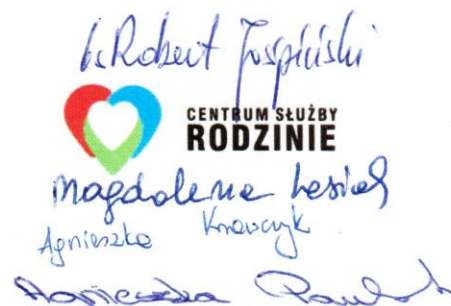 ks. Robert
CENTRUM SŁUŻBY
RODZINIE
Magdalena Lesiak
Agnieszka Krawczyk
Agnieszka